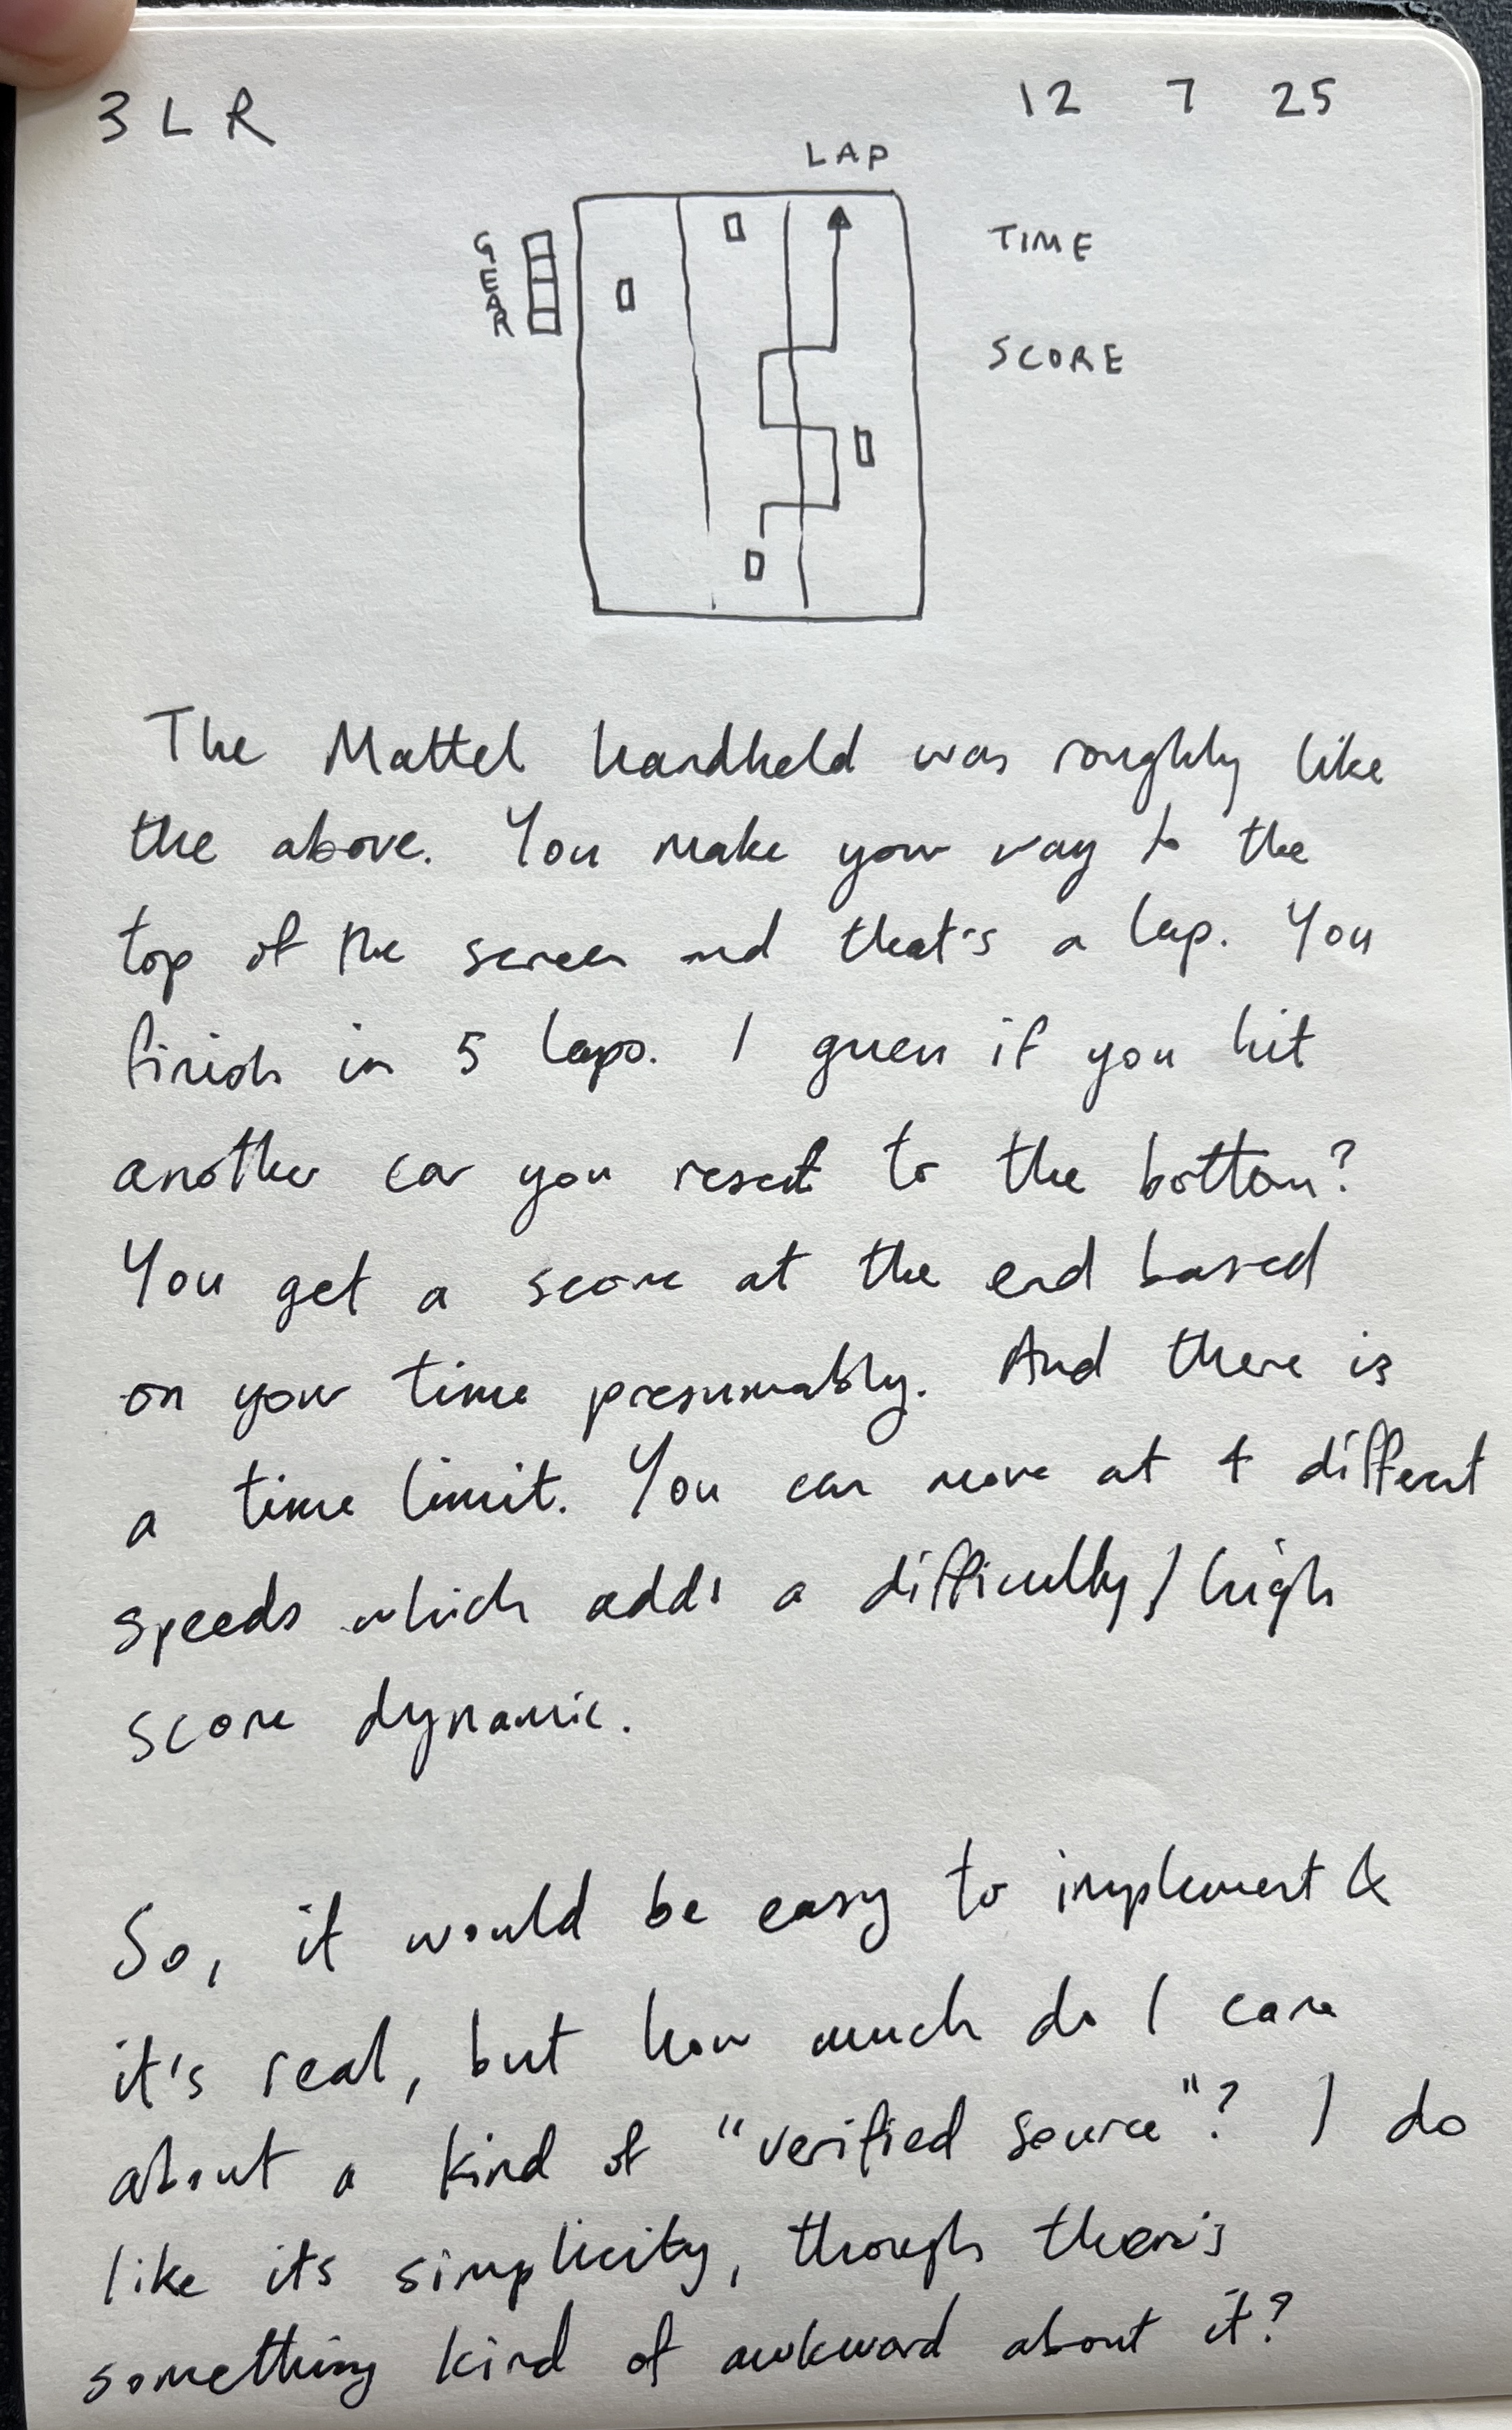 3LR 12 7 25
LAP
GEAR
TIME
SCORE
The Mattel handheld was roughly like
the above. You make your way to the
top of the screen and that's a lap. You
finish in 5 laps. I guess if you hit
another car you reset to the bottom?
You get a score at the end based
on your time presumably. And there is
a time limit. You can move at 4 different
speeds which adds a difficulty/high
score dynamic.
So, it would be easy to implement &
it's real, but how much do I care
about a kind of "verified source"? I do
like its simplicity, though there's
something kind of awkward about it?